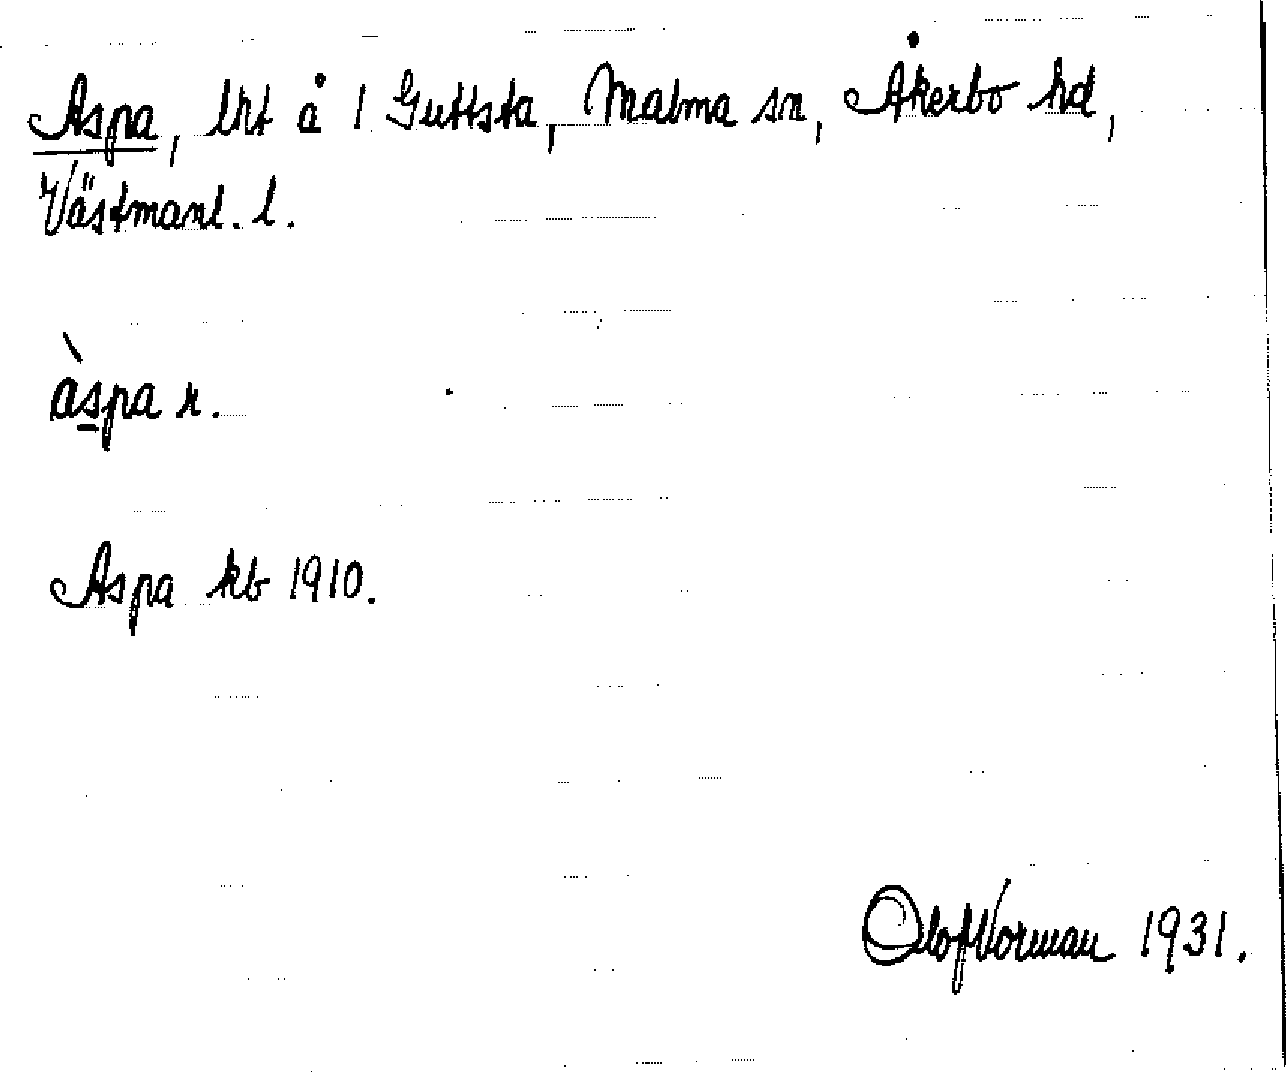 Aspa, lht å 1 Guttsta, Malma sn, Åkerbo hd,
Västmanl. l.
àspa r.
Aspa kb 1910.
Olof Norman 1931.